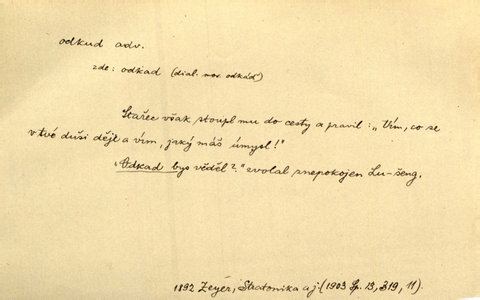 odkud adv.
zde: odkad (dial. mor. odkáď)
Stařec však stoupl mu do cesty a pravil: „Vím, co se
v tvé duši děje a vím, jaký máš úmysl!"
„Odkad bys věděl?" zvolal znepokojen Lu-šeng.
1892 Zeyer, Stratonika a j. (1903 Sp. 13, 319, 11).